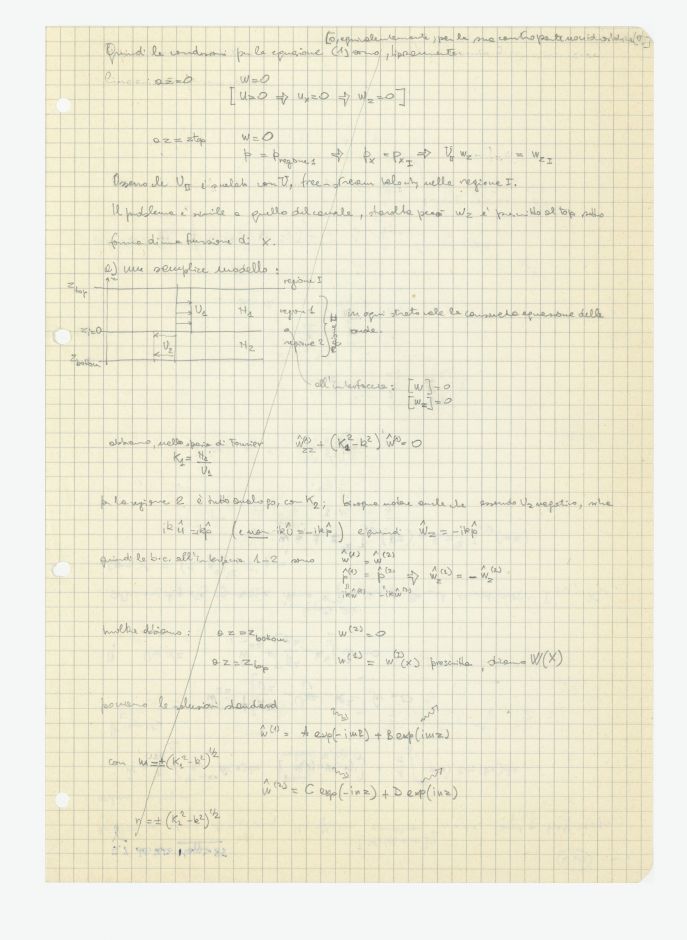 [o, equivalentemente, per la sua controparte
Quindi le condizioni per la equazione (1) sono,
a z=0 w=0
[u=0 ⇒ u_x=0 ⇒ w_z=0]
a z = z_top w=0
p = p_regione 1 ⇒ p_x = p_x_I ⇒ w_z = w_z_I
U_II è scalata con U, free-stream velocity nella regione I.
Il problema è simile a quello del canale, stavolta però w_z è prescritto al top sotto
forma di una funzione di x.
a) un semplice modello:
z_top regione I
U_1 N_1 regione 1
z=0 a
U_2 N_2 regione 2
z_bottom
regione II
in ogni strato vale la consueta equazione delle
onde.
all'interfaccia: [w]=0
[w_z]=0
abbiamo, nello spazio di Fourier ŵ^(1)_zz + (K_1^2-k^2) ŵ^(1) = 0
K_1 = N_1/U_1
per la regione 2 è tutto analogo, con K_2; bisogna notare anche che essendo U_2 negativo,
ik û = ik p̂ (e non ik û = -ik p̂) e quindi ŵ_z = -ik p̂
quindi le b.c. all'interfaccia 1-2 sono ŵ^(1) = ŵ^(2)
p̂^(1) = p̂^(2) ⇒ ŵ_z^(1) = -ŵ_z^(2)
inoltre abbiamo: a z = z_bottom w^(2) = 0
a z = z_top w^(1) = w^(I)(x) prescritta, diciamo W(X)
poniamo le soluzioni standard
ŵ^(1) = A exp(-imz) + B exp(imz)
con m = ±(K_1^2-k^2)^1/2
ŵ^(2) = C exp(-inz) + D exp(inz)
n = ±(K_2^2-k^2)^1/2